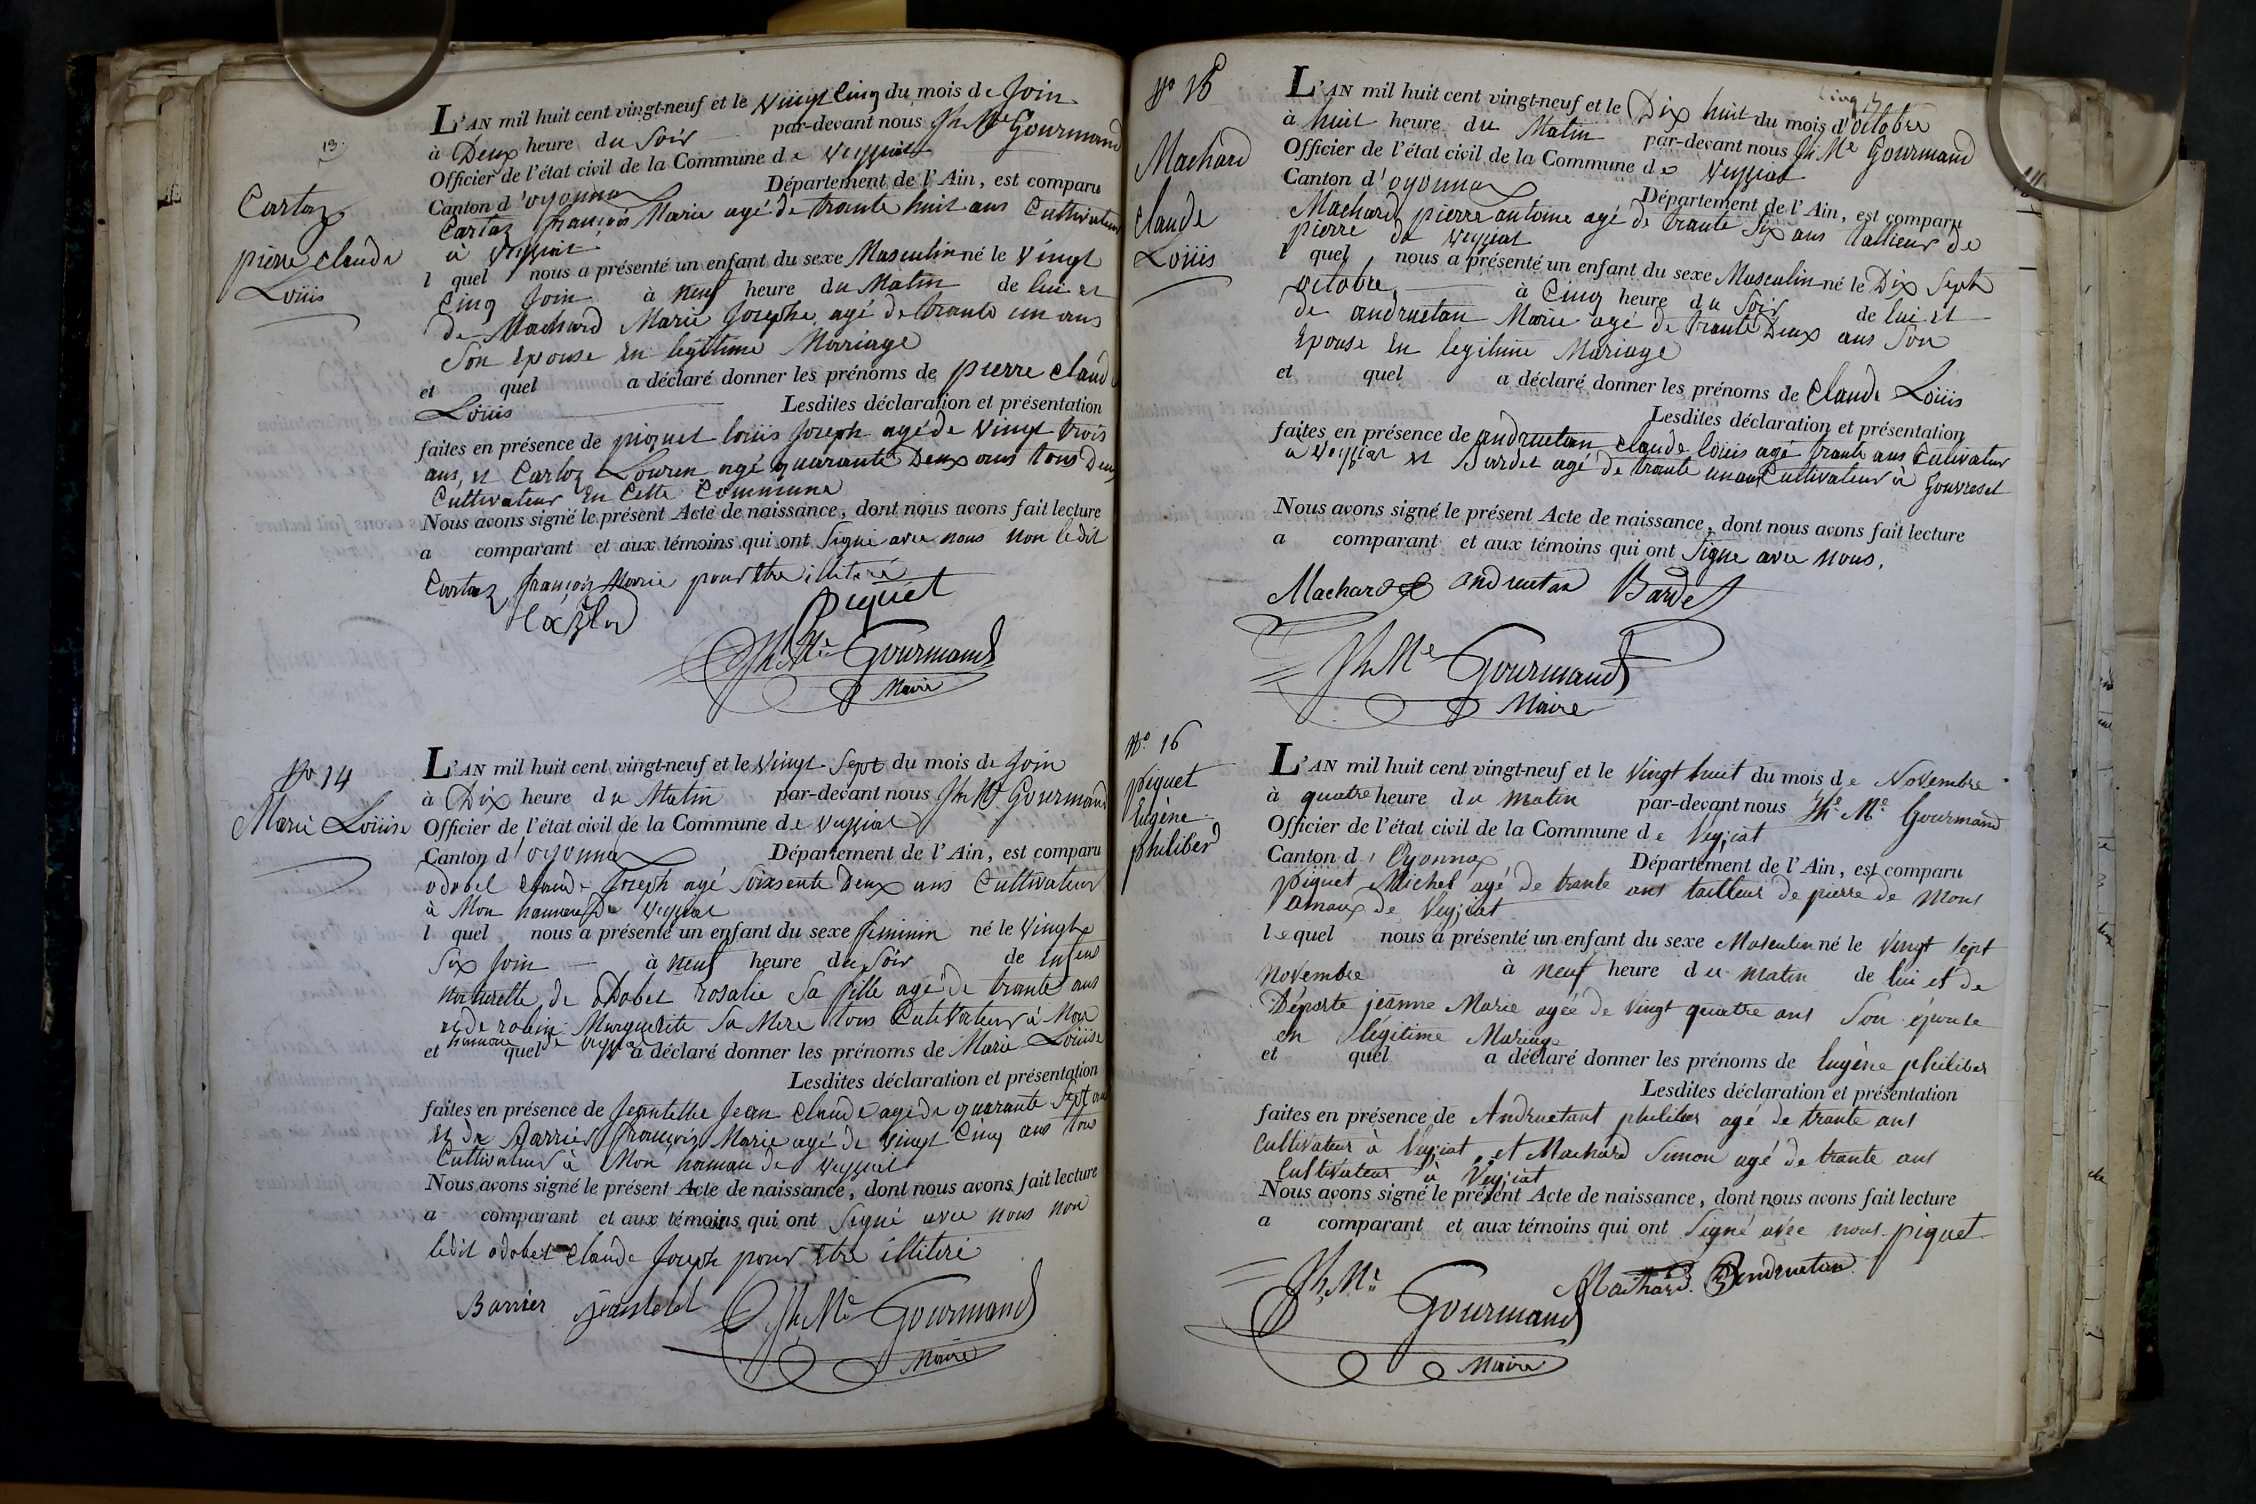 13.
Cartaz
pierre Claude
Loüis
L'AN mil huit cent vingt-neuf et le vingt Cinq du mois de Join
à Deux heure du Soir par-devant nous Jh Me Gourmand
Officier de l'état civil de la Commune de veyziat
Canton d'oyonnax Département de l'Ain, est comparu
Cartaz françois Marie agé de trante huit ans Cultivateur
à veyziat
l quel nous a présenté un enfant du sexe Masculin né le vingt
Cinq Join à neuf heure du Matin de lui et
de Machard Marie Josephe agé de trante un ans
Son Epouse En legitime Mariage
et quel a déclaré donner les prénoms de pierre claude
Loüis Lesdites déclaration et présentation
faites en présence de piquet loüis Joseph agé de vingt trois
ans, et Cartaz Louren agé quarante Deux ans tous Deux
Cultivateur En Cette Commune
Nous avons signé le présent Acte de naissance, dont nous avons fait lecture
a comparant et aux témoins qui ont Signe avec nous non ledit
Cartaz françois Marie pour Etre illiteré
piquet
Jh Me Gourmand
Maire
No 14
Marie Loüise
L'AN mil huit cent vingt-neuf et le vingt-Sept du mois de Join
à Dix heure du Matin par-devant nous Jh Me Gourmand
Officier de l'état civil de la Commune de veyziat
Canton d'oyonnax Département de l'Ain, est comparu
odobel claude Joseph agé Soixsente Deux ans Cultivateur
à Mon hameau De veyziat
l quel nous a présenté un enfant du sexe feminin né le vingt
Six Join à neuf heure du Soir de enfens
naturelle de odobet rosalie Sa fille agé de trante ans
et de robin Marguerite Sa Mere tous Cultivateur à Mon
hameau de veyziat
et quel a déclaré donner les prénoms de Marie Loüise
Lesdites déclaration et présentation
faites en présence de Jeantelle Jean Claude agé de quarante Sept ans
et de Barrier françois Marie agé de vingt Cinq ans tous
Cultivateur à Mon hameau de veyziat
Nous avons signé le présent Acte de naissance, dont nous avons fait lecture
a comparant et aux témoins qui ont Signé avec nous non
ledit odobet Claude Joseph pour Etre illiteré
Barrier Jeantelet Jh Me Gourmand
Maire
No 15
Machard
Claude
Loüis
L'AN mil huit cent vingt-neuf et le Dix huit du mois d'octobre
à huit heure du Matin par-devant nous Jh Me Gourmand
Officier de l'état civil de la Commune de veyziat
Canton d'oyonnax Département de l'Ain, est comparu
Machard pierre antoine agé de trante Six ans tallieur de
pierre de veyziat
l quel nous a présenté un enfant du sexe Masculin né le Dix Sept
octobre à Cinq heure du Soir de lui et
de andruetan Marie agé de trante Deux ans Son
Epouse En legitime Mariage
et quel a déclaré donner les prénoms de Claude Loüis
Lesdites déclaration et présentation
faites en présence de andruetan claude loüis agé trante ans Cultivateur
à veyziat et Bardet agé de trante un ans Cultivateur à Gouvreset
Nous avons signé le présent Acte de naissance, dont nous avons fait lecture
a comparant et aux témoins qui ont Signe avec nous.
Machard andruetan Bardet
Jh Me Gourmand
Maire
No 16
piquet
Eugène
philiberd
L'AN mil huit cent vingt-neuf et le vingt huit du mois de Novembre
à quatre heure du matin par-devant nous Jh Me Gourmand
Officier de l'état civil de la Commune de Veyziat
Canton d'Oyonnax Département de l'Ain, est comparu
piquet Michel agé de trante ans tailleur de pierre de Mons
amaux de Veyziat
lequel nous a présenté un enfant du sexe Masculin né le vingt sept
novembre à neuf heure du matin de lui et de
Déporte jeanne Marie agée de vingt quatre ans Son épouse
en légitime Mariage
et quel a déclaré donner les prénoms de Eugène philiber
Lesdites déclaration et présentation
faites en présence de Andruetant philiber agé de trante ans
Cultivateur à Veyziat et Machard Simon agé de trante ans
Cultivateur à Veyziat
Nous avons signé le présent Acte de naissance, dont nous avons fait lecture
a comparant et aux témoins qui ont Signé avec nous piquet
Machard. andruetan
Jh Me Gourmand
Maire